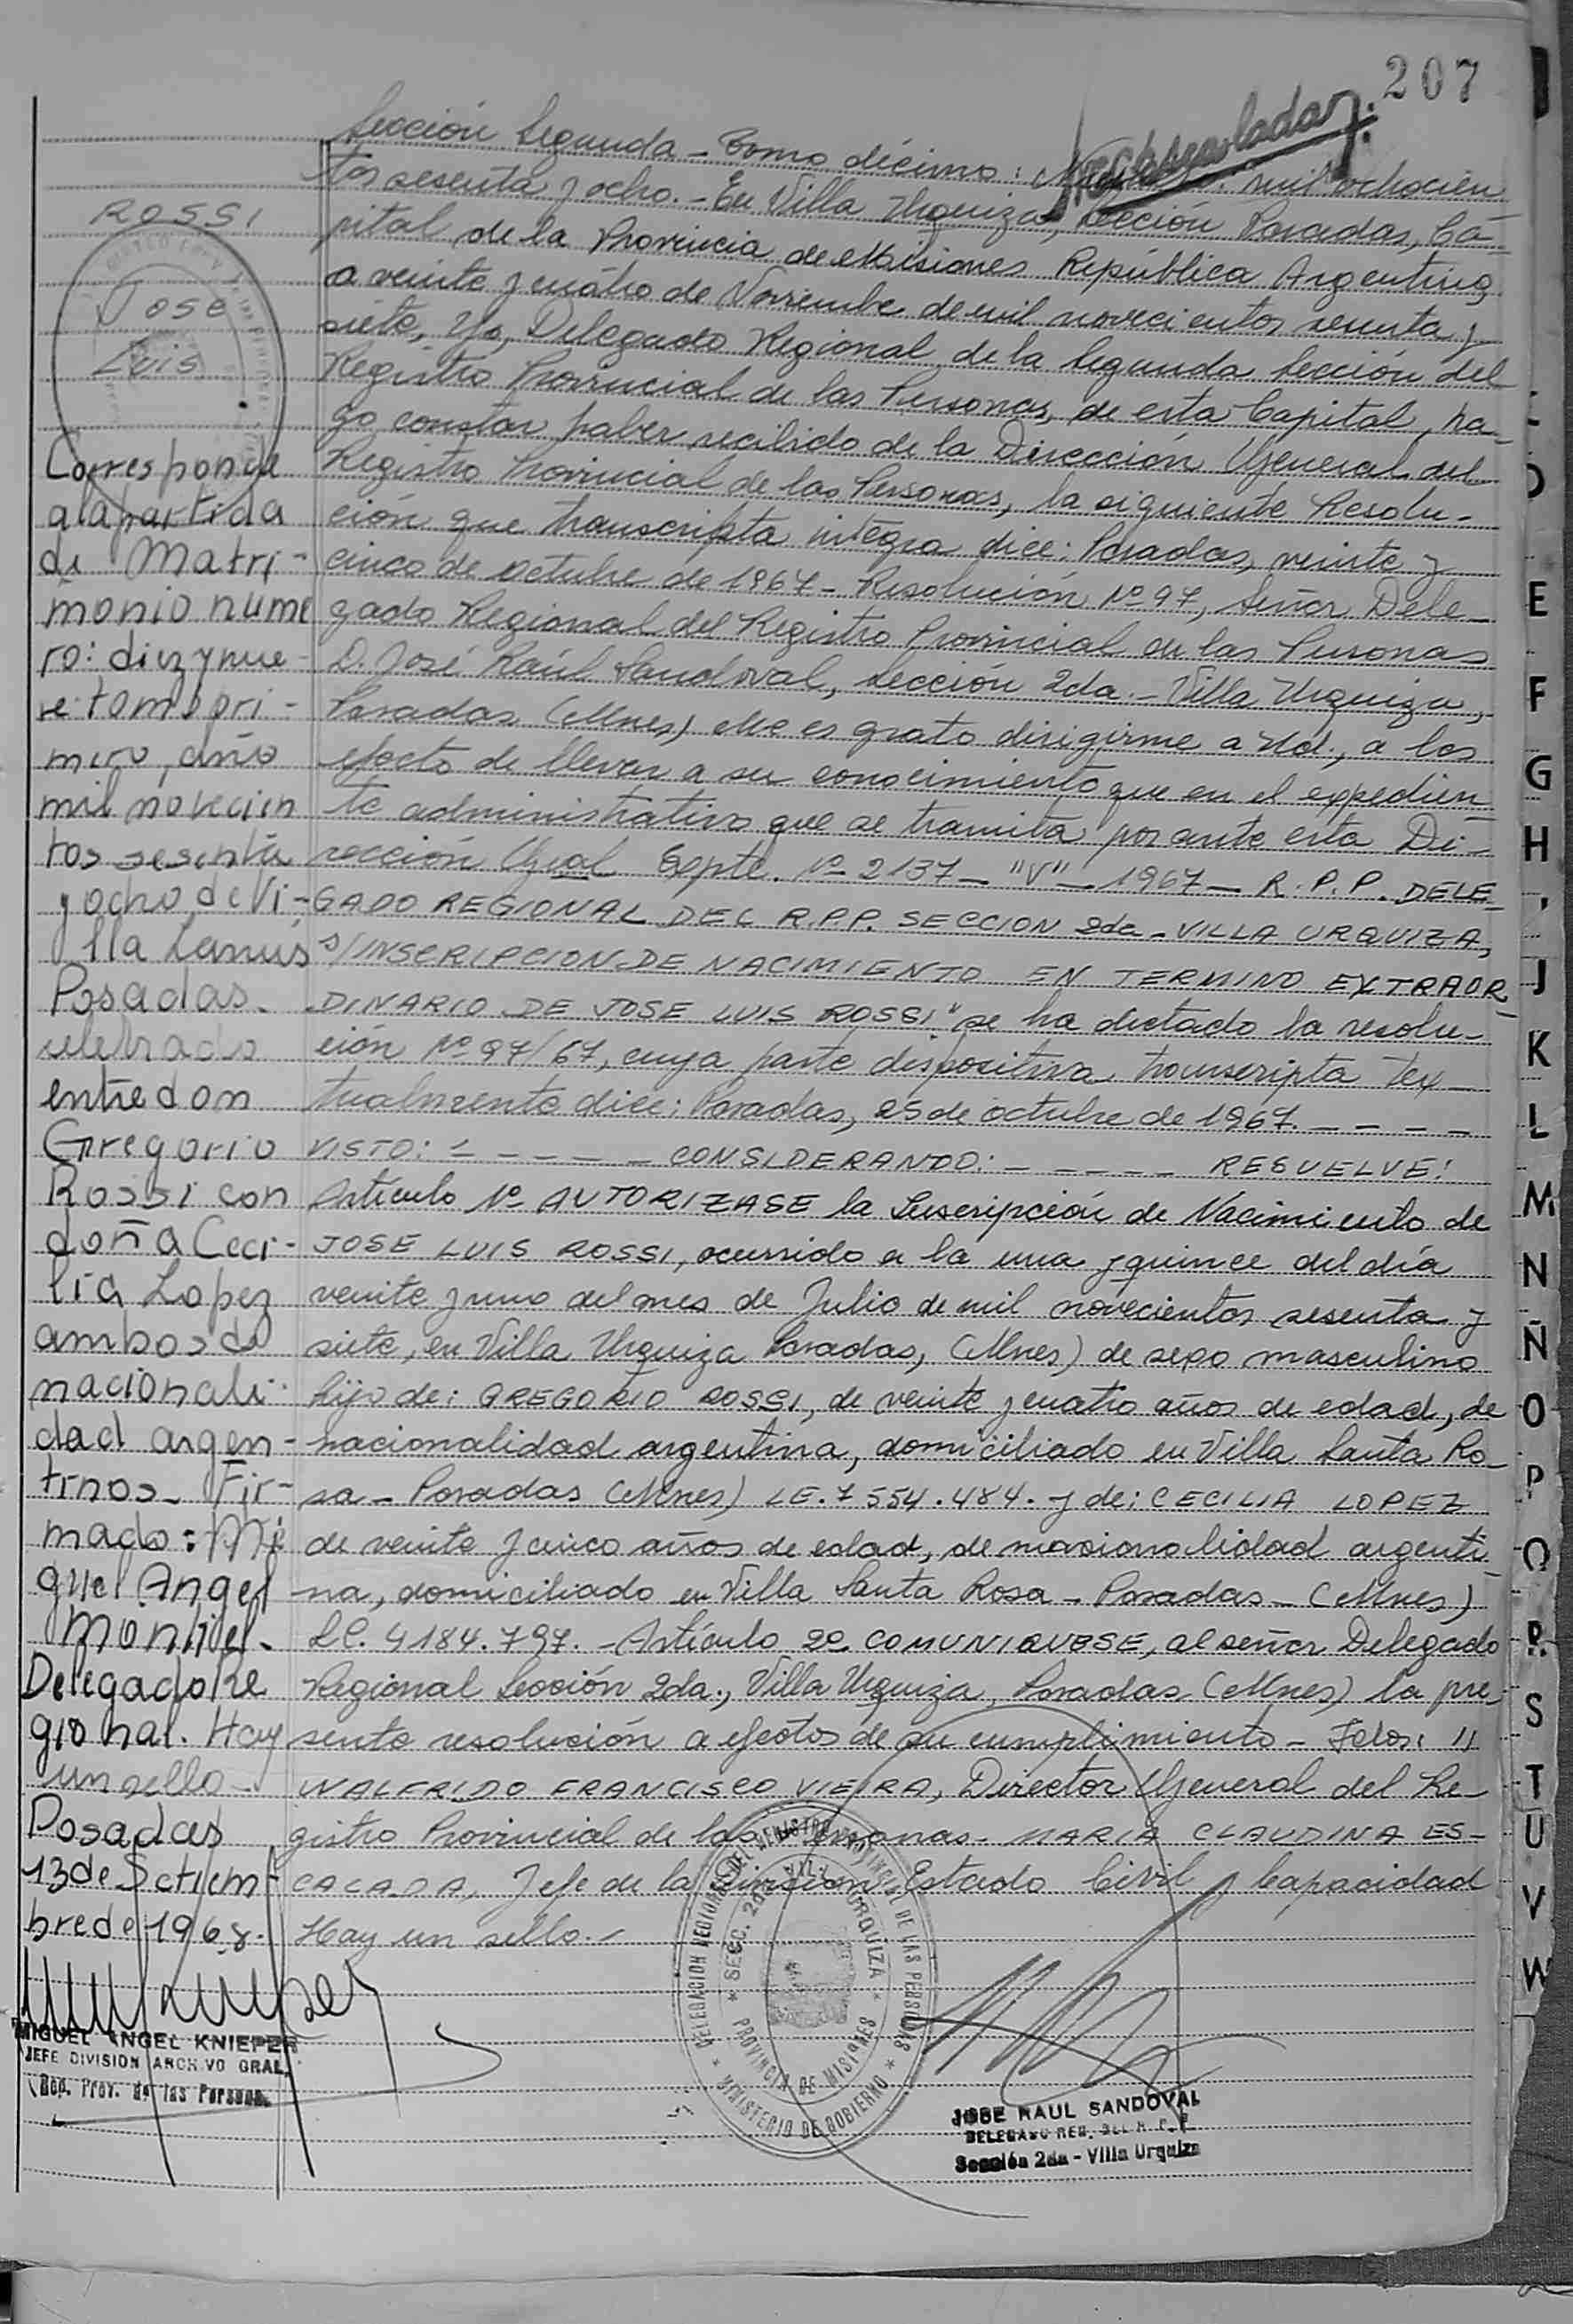 207
Sección Segunda - Tomo décimo: mil ochocien
tos sesenta y ocho. - En Villa Urquiza, Sección Posadas, Ca-
pital de la Provincia de Misiones República Argentina
a veinte y cuatro de Noviembre de mil novecientos sesenta y
siete, Yo, Delegado Regional de la Segunda Sección del
Registro Provincial de las Personas, de esta Capital, ha-
go constar haber recibido de la Dirección General del
Registro Provincial de las Personas, la siguiente Resolu-
ción que transcripta integra dice: Posadas, veinte y
cinco de octubre de 1967 - Resolución Nº 97, Señor Dele-
gado Regional del Registro Provincial de las Personas
D. José Raúl Sandoval, Sección 2da. - Villa Urquiza,
Posadas (Mnes) Me es grato dirigirme a Ud., a los
efecto de llevar a su conocimiento que en el expedien
te administrativo que se tramita por ante esta Di-
rección Gral Expte. Nº 2137 - "V" - 1967 - R.P.P. DELE-
GADO REGIONAL DEL R.P.P. SECCION 2da - VILLA URQUIZA,
S/INSCRIPCION DE NACIMIENTO EN TERMINO EXTRAOR
DINARIO DE JOSE LUIS ROSSI" se ha dictado la resolu-
ción Nº 97/67, cuya parte dispositiva transcripta Tex-
tualmente dice: Posadas, 25 de octubre de 1967. - - - -
VISTO: - - - - - - CONSIDERANDO: - - - - - RESUELVE:
Artículo Nº AUTORIZASE la Inscripción de Nacimiento de
JOSE LUIS ROSSI, ocurrido a la una y quince del día
veinte y uno del mes de Julio de mil novecientos sesenta y
siete, en Villa Urquiza Posadas, (Mnes) de sexo masculino
hijo de: GREGORIO ROSSI, de veinte y cuatro años de edad, de
nacionalidad argentina, domiciliado en Villa Santa Ro-
sa - Posadas (Mnes) LE. 7554.484. y de: CECILIA LOPEZ
de veinte y cinco años de edad, de nacionalidad argenti
na, domiciliado en Villa Santa Rosa - Posadas - (Mnes)
LC. 4184.797. - Artículo 2º COMUNIQUESE, al señor Delegado
Regional Sección 2da., Villa Urquiza, Posadas (Mnes) la pre-
sente resolución a efectos de su cumplimiento - Fdos:
WALFRIDO FRANCISCO VIEIRA, Director General del Re-
gistro Provincial de las Personas - MARIA CLAUDINA ES-
CALADA, Jefe de la División Estado Civil y Capacidad
Hay un sello.-
ROSSI
Jose
Luis
Corresponde
a la partida
de Matri-
monio nume
ro: diez y nue-
ve tomo pri-
mero, año
mil novecien
tos sesenta
y ocho de Vi-
lla Lanús
Posadas.
celebrado
entre don
Gregorio
Rossi con
doña Ceci-
lia Lopez
ambos de
nacionali-
dad argen-
tinos - Fir-
mado: Mi
guel Angel
Montiel -
Delegado Re
gional. Hay
un sello -
Posadas
13 de Setiem-
bre de 1968.
MIGUEL ANGEL KNIEPER
JEFE DIVISION ARCHIVO GRAL.
Reg. Prov. de las Personas
DELEGACION REGIONAL DEL REGISTRO PROVINCIAL DE LAS PERSONAS
* MINISTERIO DE GOBIERNO *
* SEC. 2da. VILLA URQUIZA *
PROVINCIA DE MISIONES
JOSE RAUL SANDOVAL
DELEGADO REG. DEL R. P. P.
Sección 2da - Villa Urquiza
E
F
G
H
I
J
K
L
M
N
Ñ
O
P
Q
R
S
T
U
V
W